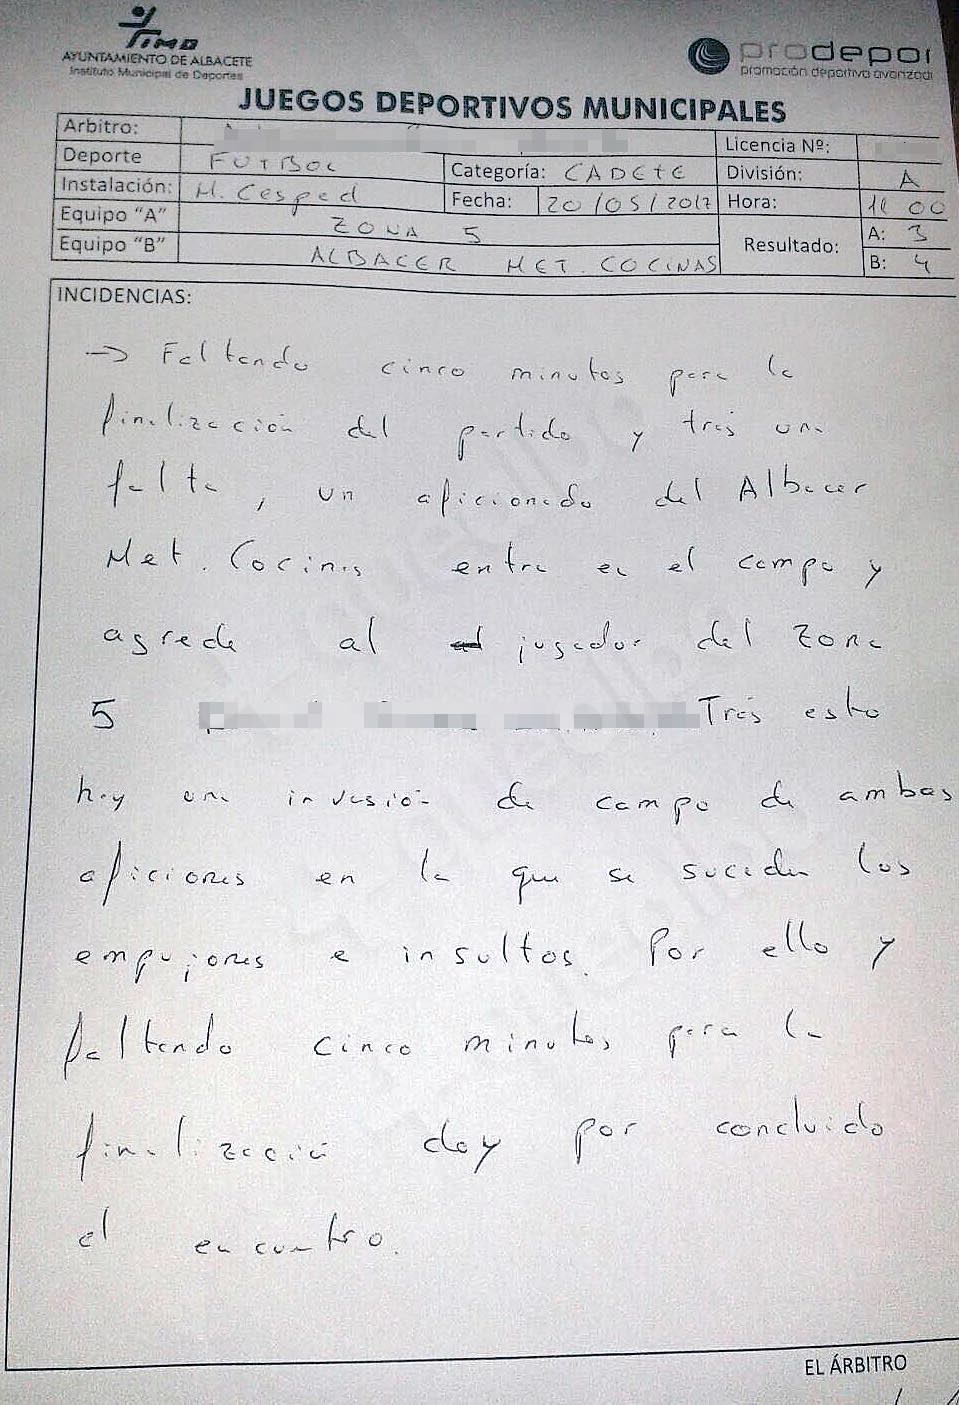 IMD
AYUNTAMIENTO DE ALBACETE
Instituto Municipal de Deportes
prodepor
promoción deportiva avanzad
JUEGOS DEPORTIVOS MUNICIPALES
Arbitro: Licencia Nº:
Deporte FUTBOL Categoría: CADETE División: A
Instalación: M. Cesped Fecha: 20/05/2017 Hora: 00
Equipo "A" ZONA 5 Resultado: A: 3
Equipo "B" ALBACER MET. COCINAS B: 4
INCIDENCIAS:
→ Faltando cinco minutos para la
finalización del partido y trás una
falta, un aficionado del Albacer
Met. Cocinas entra en el campo y
agrede al jugador del Zona
5 Trás esto
hay una invasión de campo de ambas
aficiones en la que se suceden los
empujones e insultos. Por ello y
faltando cinco minutos para la
finalización doy por concluido
el encuentro.
EL ÁRBITRO